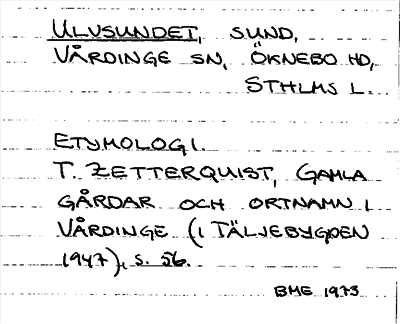 ULVSUNDET, SUND,
VÅRDINGE SN, ÖKNEBO HD,
STHLMS L.
ETYMOLOGI.
T. ZETTERQUIST, GAMLA
GÅRDAR OCH ORTNAMN I
VÅRDINGE (I TÄLJEBYGDEN
1947), S. 56.
BME 1973